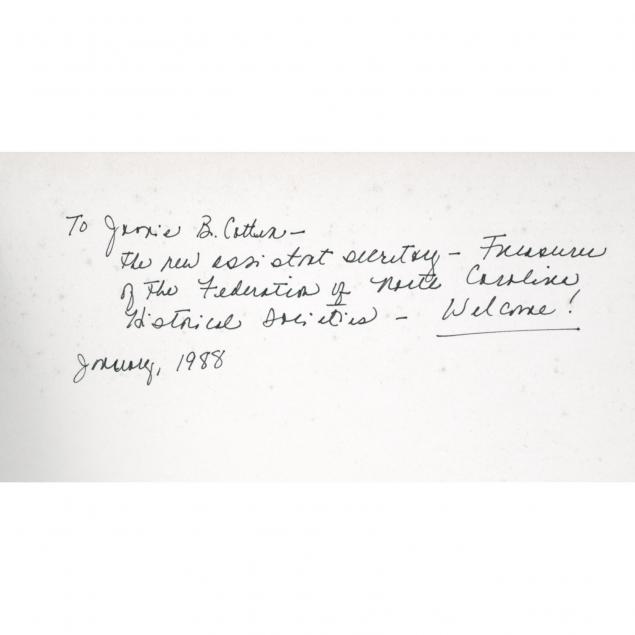 To Jo Anie B. Cotten –
the new assistant secretary – Treasurer
of the Federation of North Carolina
Historical Societies – Welcome!
January, 1988